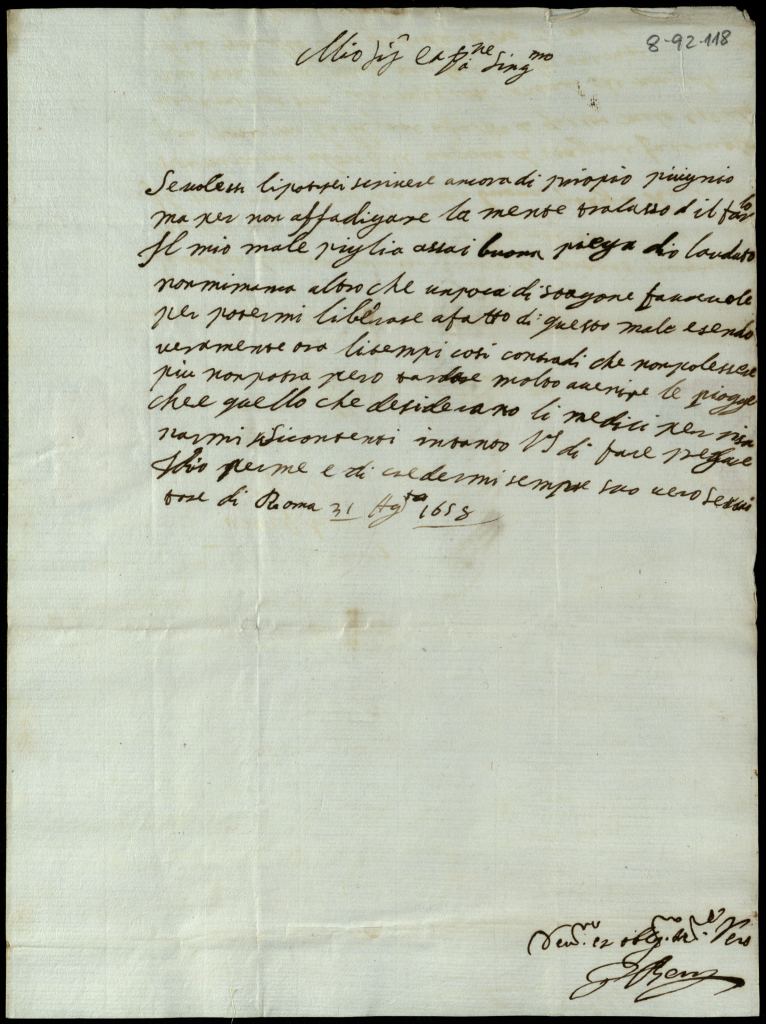 8-92-118
Mio Sig.r Cap.ne Sing.mo
Se volessi li potrei scrivere ancora di propio pugnio
ma per non affadigare la mente tralasso d il farlo
Il mio male piglia assai buona piega dio laudato
non mi manca altro che un poca di stagone favevole
per potermi liberare afatto di questo male esendo
veramente ora li tempi cosi contradi che non pol essere
piu non potra pero tardare molto a venire le piogge
che e quello che desiderano li medici per risa
narmi si contenti intanto VS di fare pregare
Idio per me e di credermi sempre suo vero servi
tore di Roma 31 Ag.ta 1658
Dev.mo et oblig.mo Vero